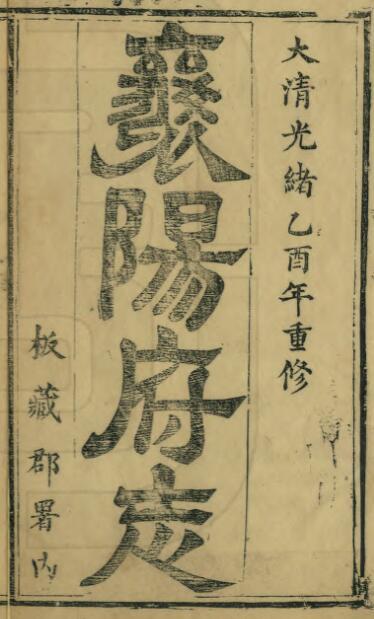 大清光緒乙酉年重修
襄陽府志
板藏郡署內